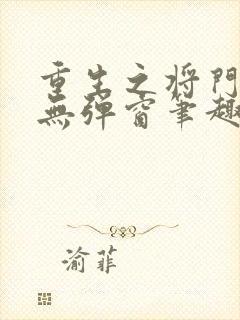 重生之将门
無弹窗笔趣
渝菲